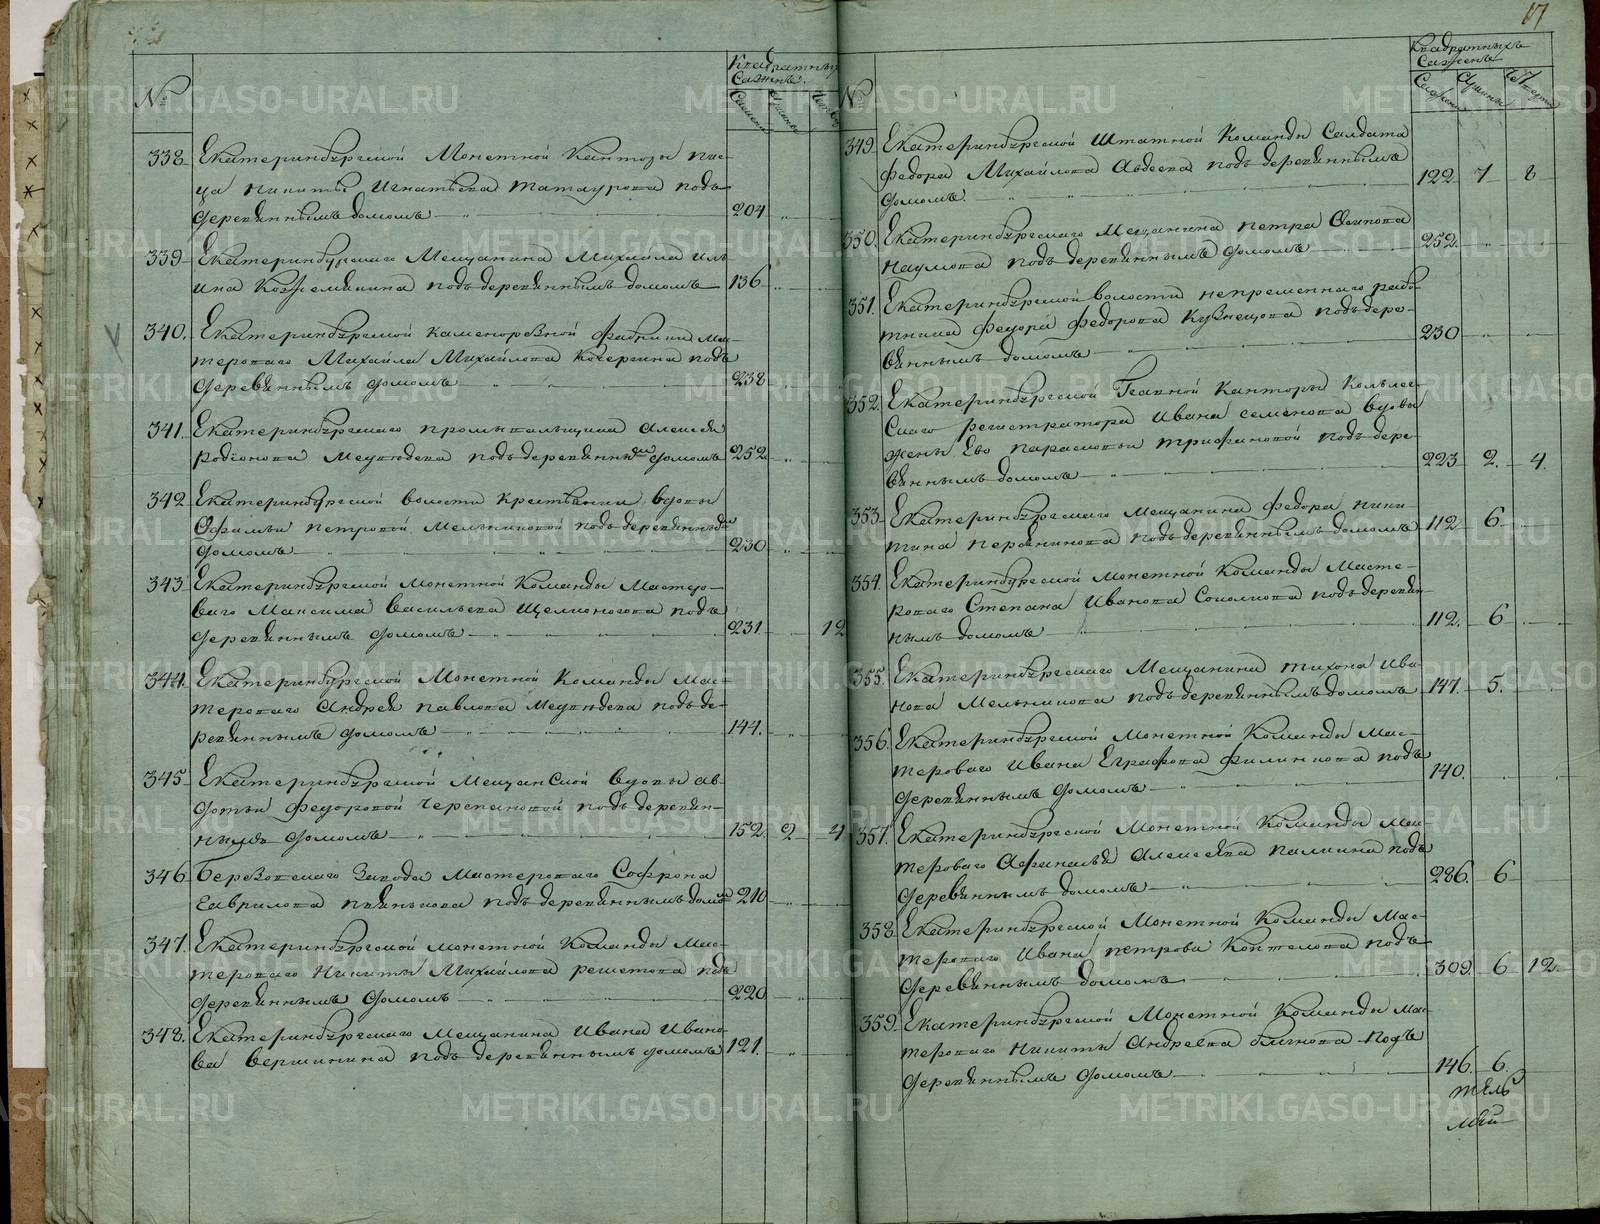 №
Квадратныхъ
Саженъ.
Сажени
Аршины
338 Екатеринбургской Монетной Канторы пис-
ца Никиты Игнатьева Татаурова подъ
деревяннымъ домомъ 204
339 Екатеринбургскаго Мещанина Михаила Иль-
ина Кожевникова подъ деревяннымъ домомъ 136
340. Екатеринбургской каменорезной фабрики Мас-
тероваго Михайла Михайлова Кочергина подъ
деревяннымъ домомъ 238
341. Екатеринбургскаго промывальщика Алексея
Родіонова Медведева подъ деревяннымъ домомъ 252
342 Екатеринбургской волости крестьянки вдовы
Офимьи Петровой Мельниковой подъ деревяннымъ
домомъ 230
343 Екатеринбургской Монетной Команды Мастеро-
ваго Максима Васильева Щелконогова подъ
деревяннымъ домомъ 231. 12
344. Екатеринбургской Монетной Команды Мас-
тероваго Андрея Павлова Медведева подъ де-
ревяннымъ домомъ 144.
345 Екатеринбургской Мещанской вдовы Ав-
дотьи Федоровой Черепановой подъ деревян-
нымъ домомъ 152. 2 4
346 Березовскаго Завода Мастероваго Софрона
Гаврилова Пьянкова подъ деревяннымъ домомъ 210
347. Екатеринбургской Монетной Команды Мас-
тероваго Никиты Михайлова Решетова подъ
деревяннымъ домомъ 220
348. Екатеринбургскаго Мещанина Ивана Ивано-
ва Вершинина подъ деревяннымъ домомъ 121.
17
№
Квадратныхъ
Саженъ
Сажени
Аршины
349. Екатеринбургской Штатной Команды Салдата
Федора Михайлова Авдеева подъ деревяннымъ
домомъ. 122 7 8
350. Екатеринбургскаго Мещанина Петра Осипова
Наумова подъ деревяннымъ домомъ 252.
351. Екатеринбургской волости непременнаго рабо-
тника Федора Федорова Кузнецова подъ дере-
вяннымъ домомъ 230
352. Екатеринбургской Главной Канторы Коллеж-
скаго регистратора Ивана Семенова вдовы
жены Ево Парасковьи Трифановой подъ дере-
вяннымъ домомъ 223 2. 4.
353. Екатеринбургскаго Мещанина Федора Ники-
тина подъ деревяннымъ домомъ 112 6
354. Екатеринбургской Монетной Команды Масте-
роваго Степана Иванова Соколкова подъ деревян-
нымъ домомъ 112. 6
355. Екатеринбургскаго Мещанина Тихона Ива-
нова Мельникова подъ деревяннымъ домомъ 147. 5.
356. Екатеринбургской Монетной Команды Мас-
тероваго Ивана Евграфова Филинкова подъ
деревяннымъ домомъ 140.
357. Екатеринбургской Монетной Команды Мас-
тероваго Афанасья Алексеева Палкина подъ
деревяннымъ домомъ 286. 6
358 Екатеринбургской Монетной Команды Мас-
тероваго Ивана Петрова Коптелова подъ
деревяннымъ домомъ 309. 6 12.
359. Екатеринбургской Монетной Команды Мас-
тероваго Никиты Андреева Блинова подъ
деревяннымъ домомъ 146. 6.
METRIKI.GASO-URAL.RU